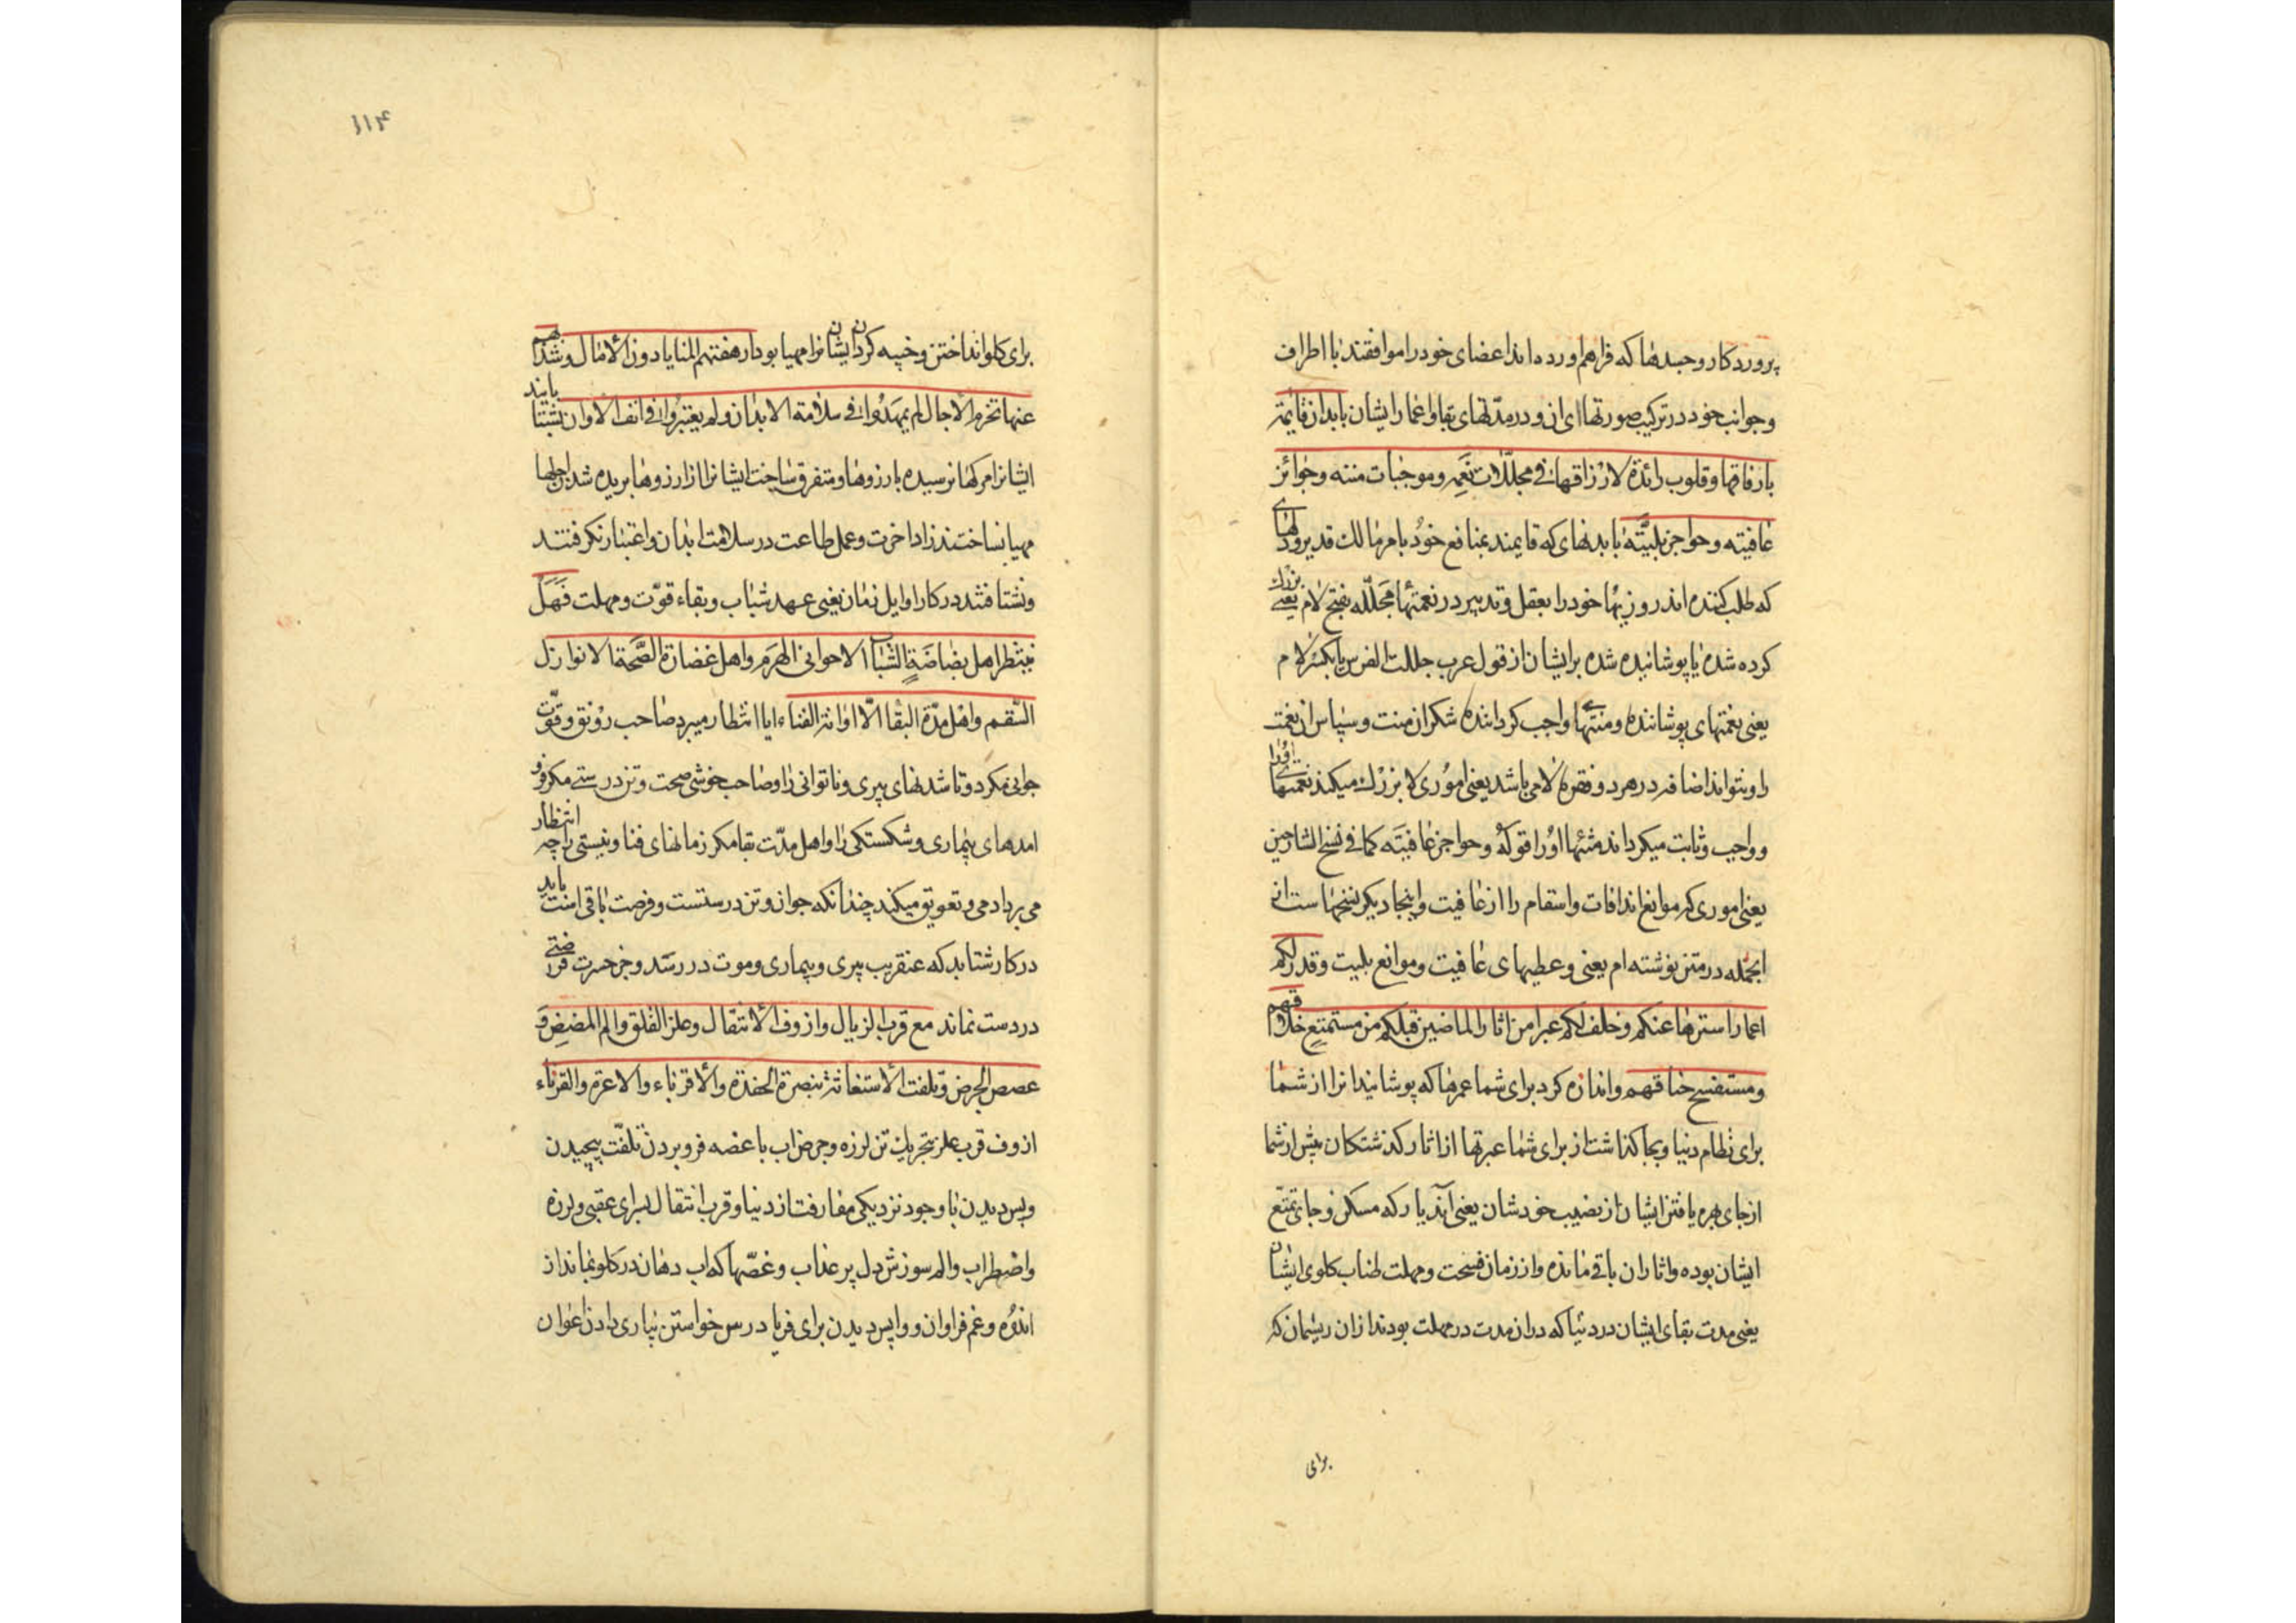 پروردکار وجسدها که فراهم اورده اند اعضای خود را موافقند با اطراف
وجوانب خود در ترکیب صورتها ای ان و در مدتهای بقا واعمار ایشان بابدان قائمة
بارفاقها وقلوب رائدة لارزاقها فی مجللات نعمه وموجبات مننه وجوائز
عافیته وحواجز بلیته با بدنهای که قایمند بمنافع خود بامر مالك قدیر ودلهای
که طلب کننده اند روزیها خود را بعقل وتدبیر در نعمتها مجلله بفتح لام یعنی بزرك
کرده شده یا پوشانیده شده بر ایشان از قول عرب جللت الفرس یا بکسر لام
یعنی نعمتهای پوشاننده ومنتهای واجب کرداننده شکران منت وسپاس ان نعمت
را ونتواند اضافه در هر دو فقره لامی باشد یعنی اموری لا بزرك میکند نعمتهای اورا
وواجب وثابت میکرداند منتها اورا قوله وحواجز عافیته کما فی نسخ الشارحین
یعنی اموری که موانع اند افات واسقام را از عافیت واینجا دیکر نسخها ست از
انجمله در متن نوشته ام یعنی وعطیهای عافیت وموانع بلیت وقدر لکم
اعمارا سترها عنکم وخلف لکم عبرا من اثار الماضین قبلکم من مستمتع خلاقهم
ومستفسح خناقهم واندازه کرد برای شما عمرها که پوشانید انرا از شما
برای نظام دنیا وبجا کذاشت از برای شما عبرتها از اثار کذشتکان پیش از شما
از جای بهره یافتن ایشان از نصیب خودشان یعنی آن دیار که مسکن وجای تمتع
ایشان بوده واثار ان باقی مانده واز زمان فسحت ومهلت طناب کلوی ایشان
یعنی مدت بقای ایشان در دنیا که در ان مدت در مهلت بودند از ان ریسمان که
برای
۱۱۴
برای کلو انداختن وخپه کردن ایشان انرا مهیا بود ارهقتهم المنایا دون الامال وشذبهم
عنها تخرم الاجال لم یمهدوا فی سلامة الابدان ولم یعتبروا فی انف الاوان بشتابانید
ایشانرا مرکها نرسیده بارزوها ومتفرق ساخت ایشانرا از ارزوها بریده شدن اجلها
مهیا نساختند زاد اخرت وعمل طاعت در سلامت ابدان واعتبار نکرفتند
ونشتافتند در کار اوایل زمان یعنی عهد شباب وبقاء قوّت ومهلت فهل
ینتظر اهل بضاضة الشباب الا حوانی الهرم واهل غضارة الصّحة الا نوازل
السّقم واهل مدّة البقا الّا اوانة الفناء ایا انتظار میبرد صاحب رونق وقوّت
جوانی مکر دوتا شدنهای پیری وناتوانی را وصاحب خوشی صحت وتن درستی مکر فرو
امدهای بیماری وشکستکی را واهل مدّت بقا مکر زمانهای فنا ونیستی را چه انتظار
می برد ادمی وتعویق میکند چندانکه جوان وتن درستست وفرصت باقی است باید
در کار شتابد که عنقریب پیری وبیماری وموت در رسد وجز حسرت فرصتی
در دست نماند مع قرب الزیال وازوف الانتقال وعلز القلق والم المضض و
غصص الجرض وتلفت الاستغاثة بنصرة الحفدة والاقرباء والاعزة والقرناء
ازوف قرب علز بتحریك تن لرزه وجرض اب با غصه فرو بردن تلفّت پیچیدن
وپس دیدن با وجود نزدیکی مفارقت از دنیا وقرب انتقال لسرای عقبی ولرزه
واضطراب والم سوزش دل پر عذاب وغصّها که اب دهان در کلو نماند از
اندوه وغم فراوان وواپس دیدن برای فریاد رس خواستن بیاری دادن اعوان